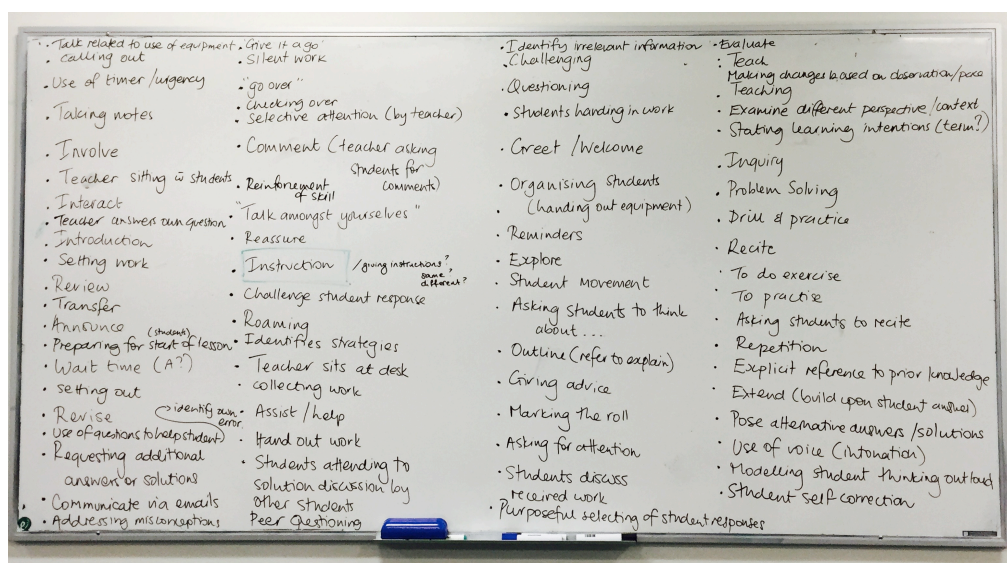 · Talk related to use of equipment
· calling out
· Use of timer /urgency
· Taking notes
· Involve
· Teacher sitting w̄ students
· Interact
· Teacher answers own question
· Introduction
· Setting work
· Review
· Transfer
· Announce
(student)
· Preparing for start of lesson
· Wait time (A?)
· setting out
· Revise
identify own error
· Use of questions to help student)
· Requesting additional
answers or solutions
· Communicate via emails
· Addressing misconceptions
· "Give it a go"
· Silent work
· "go over"
· Checking over
· Selective attention (by teacher)
· Comment (teacher asking
students for
comments)
· Reinforcement
of skill
· "Talk amongst yourselves"
· Reassure
· Instruction /giving instructions?
same,
different?
· Challenge student response
· Roaming
· Identifies strategies
· Teacher sits at desk
· collecting work
· Assist /help
· Hand out work
· Students attending to
solution discussion by
other students
Peer Questioning
· Identify irrelevant information
· Challenging
· Questioning
· Students handing in work
· Greet /Welcome
· Organising Students
· (handing out equipment)
· Reminders
· Explore
· Student Movement
· Asking Students to think
about...
· Outline (refer to explain)
· Giving advice
· Marking the roll
· Asking for attention
· Students discuss
received work
· Purposeful selecting of student responses
· Evaluate
· Teach
Making changes based on observation/pace
· Teaching
· Examine different perspective /context
· Stating learning intentions (term?)
· Inquiry
· Problem Solving
· Drill & practice
· Recite
· To do exercise
· To practise
· Asking students to recite
· Repetition
· Explicit reference to prior knowledge
· Extend (build upon student answer)
· Pose alternative answers /solutions
· Use of voice (intonation)
· Modelling student thinking out loud
· Student self correction